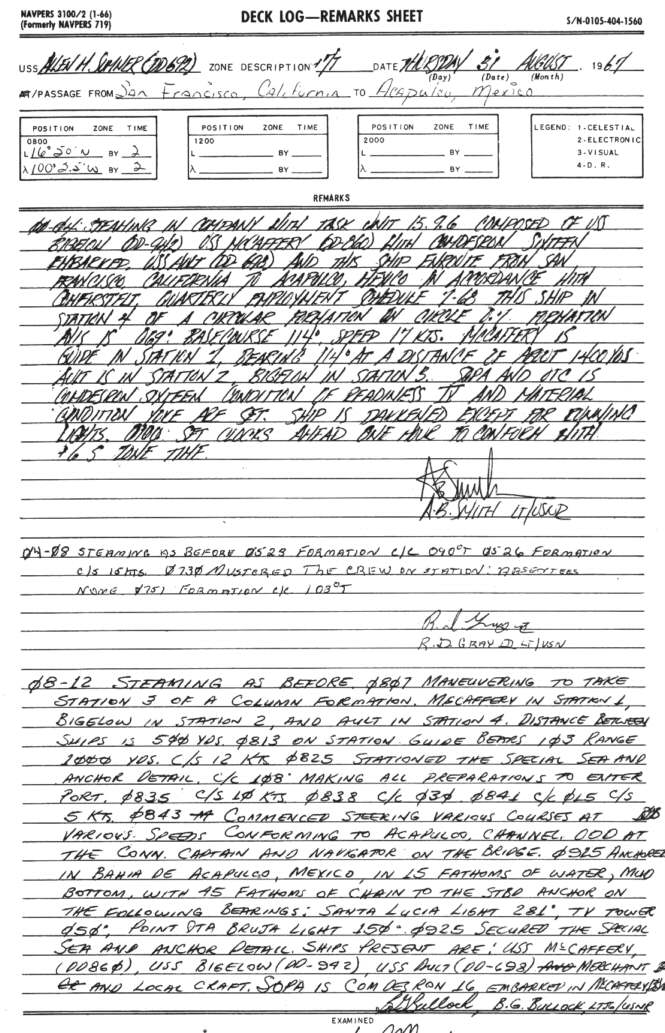 NAVPERS 3100/2 (1-66)
(Formerly NAVPERS 719)
DECK LOG—REMARKS SHEET
S/N-0105-404-1560
USS ALLEN M. SUMNER (DD692) ZONE DESCRIPTION +7 DATE THURSDAY 31 AUGUST 1967
(Day) (Date) (Month)
AT/PASSAGE FROM San Francisco, California TO Acapulco, Mexico
POSITION ZONE TIME
0800
L 16° 50' N BY 2
λ 100° 2.5' W BY 2
POSITION ZONE TIME
1200
L BY
λ BY
POSITION ZONE TIME
2000
L BY
λ BY
LEGEND: 1-CELESTIAL
2-ELECTRONIC
3-VISUAL
4-D. R.
REMARKS
00-04: STEAMING IN COMPANY WITH TASK UNIT 15.9.6 COMPOSED OF USS
BIGELOW (DD-942) USS MCCAFFERY (DD-860) WITH COMDESRON SIXTEEN
EMBARKED, USS AULT (DD 698) AND THIS SHIP ENROUTE FROM SAN
FRANCISCO, CALIFORNIA TO ACAPULCO, MEXICO IN ACCORDANCE WITH
COMFIRSTFLT. QUARTERLY EMPLOYMENT SCHEDULE 1-68 THIS SHIP IN
STATION 4 OF A CIRCULAR FORMATION ON CIRCLE FORMATION
AXIS IS 069° BASE COURSE 114°, SPEED 17 KTS. MCCAFFERY IS
GUIDE IN STATION 1, BEARING 114° AT A DISTANCE OF ABOUT 1400 YDS
AULT IS IN STATION 2, BIGELOW IN STATION 3. SOPA AND OTC IS
COMDESRON SIXTEEN CONDITION OF READINESS IV AND MATERIAL
CONDITION YOKE ARE SET. SHIP IS DARKENED EXCEPT FOR RUNNING
LIGHTS. SET CLOCKS AHEAD ONE HOUR TO CONFORM WITH
+6 S ZONE TIME.
A.B. Smith
A.B. SMITH LT/USNR
04-08 STEAMING AS BEFORE 0523 FORMATION C/C 090°T 0526 FORMATION
C/S 15 KTS. 0730 MUSTERED THE CREW ON STATION: ABSENTEES
NONE 0751 FORMATION C/C 103°T
R.D. GRAY II LT/USN
08-12 STEAMING AS BEFORE. 0807 MANEUVERING TO TAKE
STATION 3 OF A COLUMN FORMATION. MCCAFFERY IN STATION 1,
BIGELOW IN STATION 2, AND AULT IN STATION 4. DISTANCE BETWEEN
SHIPS IS 500 YDS. 0813 ON STATION GUIDE BEARS 103 RANGE
1000 YDS. C/S 12 KTS 0825 STATIONED THE SPECIAL SEA AND
ANCHOR DETAIL. C/C 108° MAKING ALL PREPARATIONS TO ENTER
PORT. 0835 C/S 10 KTS. 0838 C/C 030. 0841 C/C 015 C/S
5 KTS. 0843 COMMENCED STEERING VARIOUS COURSES AT
VARIOUS SPEEDS CONFORMING TO ACAPULCO, CHANNEL. OOD AT
THE CONN. CAPTAIN AND NAVIGATOR ON THE BRIDGE. 0925 ANCHORED
IN BAHIA DE ACAPULCO, MEXICO, IN 15 FATHOMS OF WATER, MUD
BOTTOM, WITH 45 FATHOMS OF CHAIN TO THE STBD ANCHOR ON
THE FOLLOWING BEARINGS: SANTA LUCIA LIGHT 281°, TV TOWER
050°, POINT DTA BRUJA LIGHT 150°. 0925 SECURED THE SPECIAL
SEA AND ANCHOR DETAIL. SHIPS PRESENT ARE: USS MCCAFFERY,
(DD860), USS BIGELOW (DD-942), USS AULT (DD-698) MERCHANT
AND LOCAL CRAFT. SOPA IS COM DES RON 16 EMBARKED IN MCCAFFERY
BG Bullock, B.G. BULLOCK, LTJG/USNR
EXAMINED